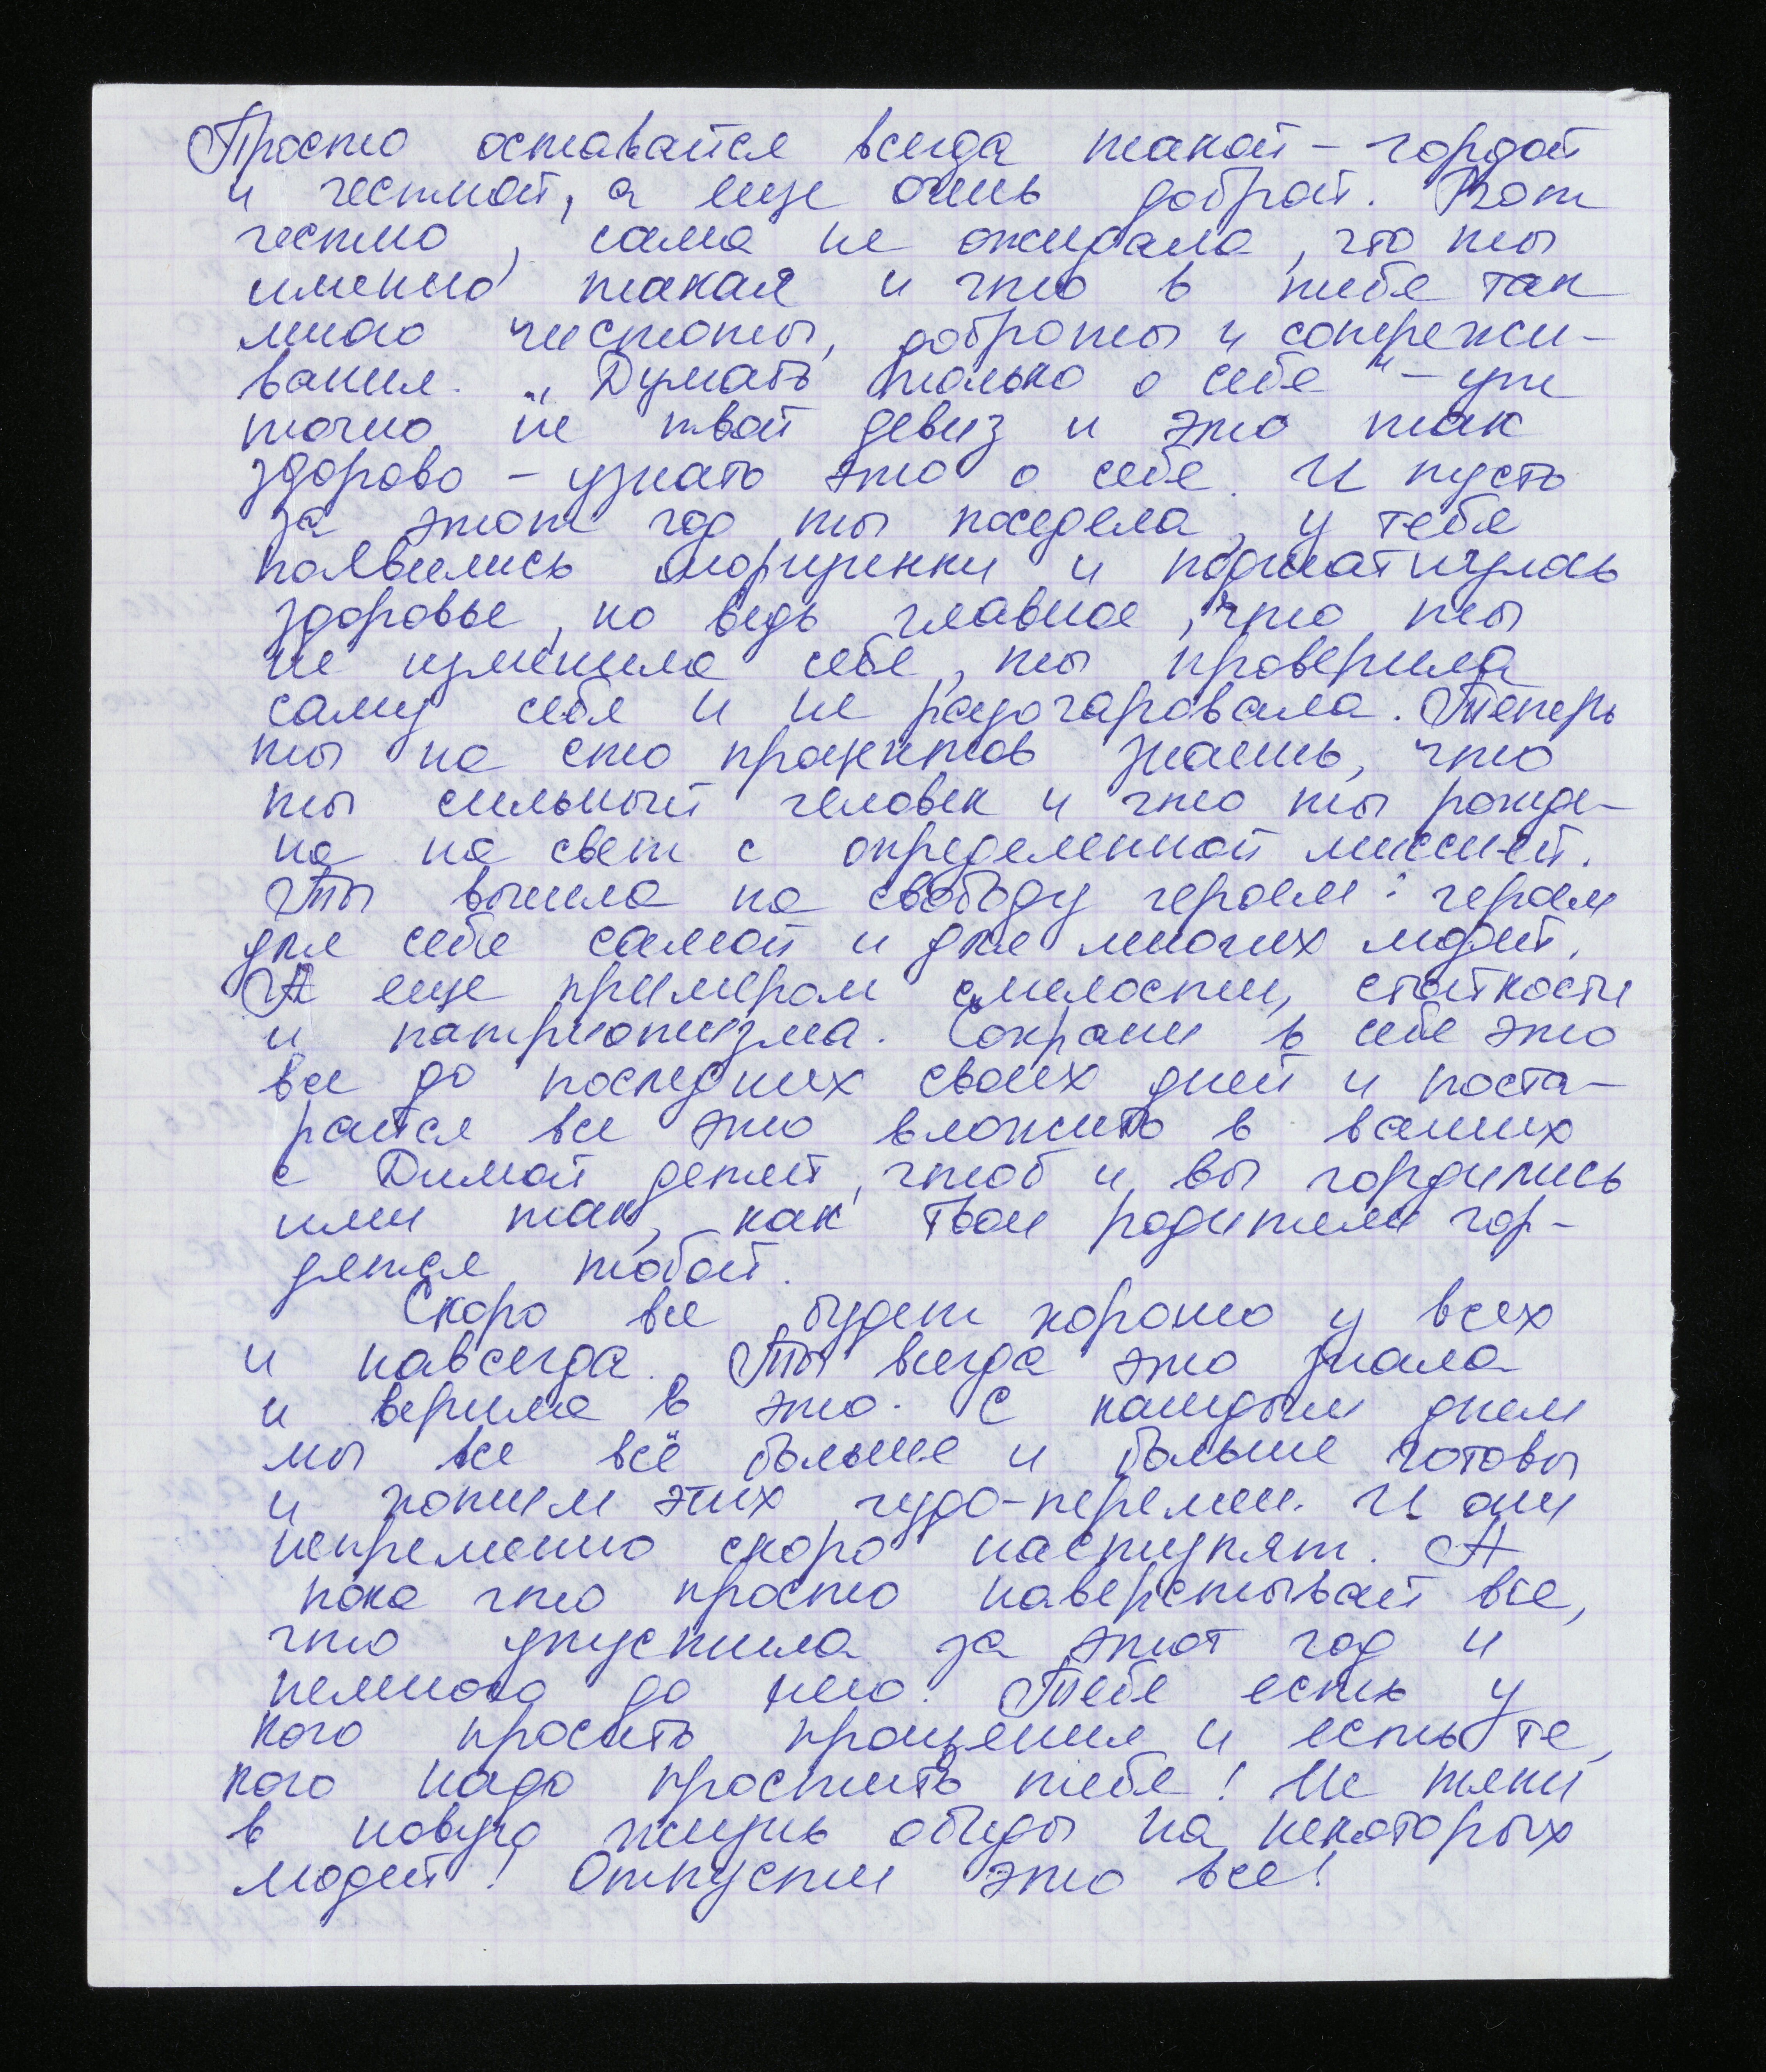 Просто оставайся всегда такой – гордой
и честной, а еще очень доброй. Вот
честно, сама не ожидала, что ты
именно такая и что в тебе так
много чистоты, доброты и сопережи-
вания. „Думать только о себе" – уж
точно не твой девиз и это так
здорово – узнать это о себе. И пусть
за этот год ты поседела, у тебя
появились морщинки и пошатнулось
здоровье, но ведь главное, что ты
не изменила себе, ты проверила
саму себя и не разочаровала. Теперь
ты на сто процентов знаешь, что
ты сильный человек и что ты рожде-
на на свет с определенной миссией.
Ты вышла на свободу героем: героем
для себя самой и для многих людей.
А еще примером смелости, стойкости
и патриотизма. Сохрани в себе это
все до последних своих дней и поста-
райся все это вложить в ваших
с Димой детей, чтоб и вы гордились
ими так, как твои родители гор-
дятся тобой.
Скоро все будет хорошо у всех
и навсегда. Ты всегда это знала
и верила в это. С каждым днем
мы все всё больше и больше готовы
и хотим этих чудо-перемен. И они
непременно скоро наступят. А
пока что просто наверстывай все,
что упустила за этот год и
немного до него. Тебе есть у
кого просить прощения и есть те,
кого надо простить тебе! Не тяни
в новую жизнь обиды на некоторых
людей! Отпусти это все!